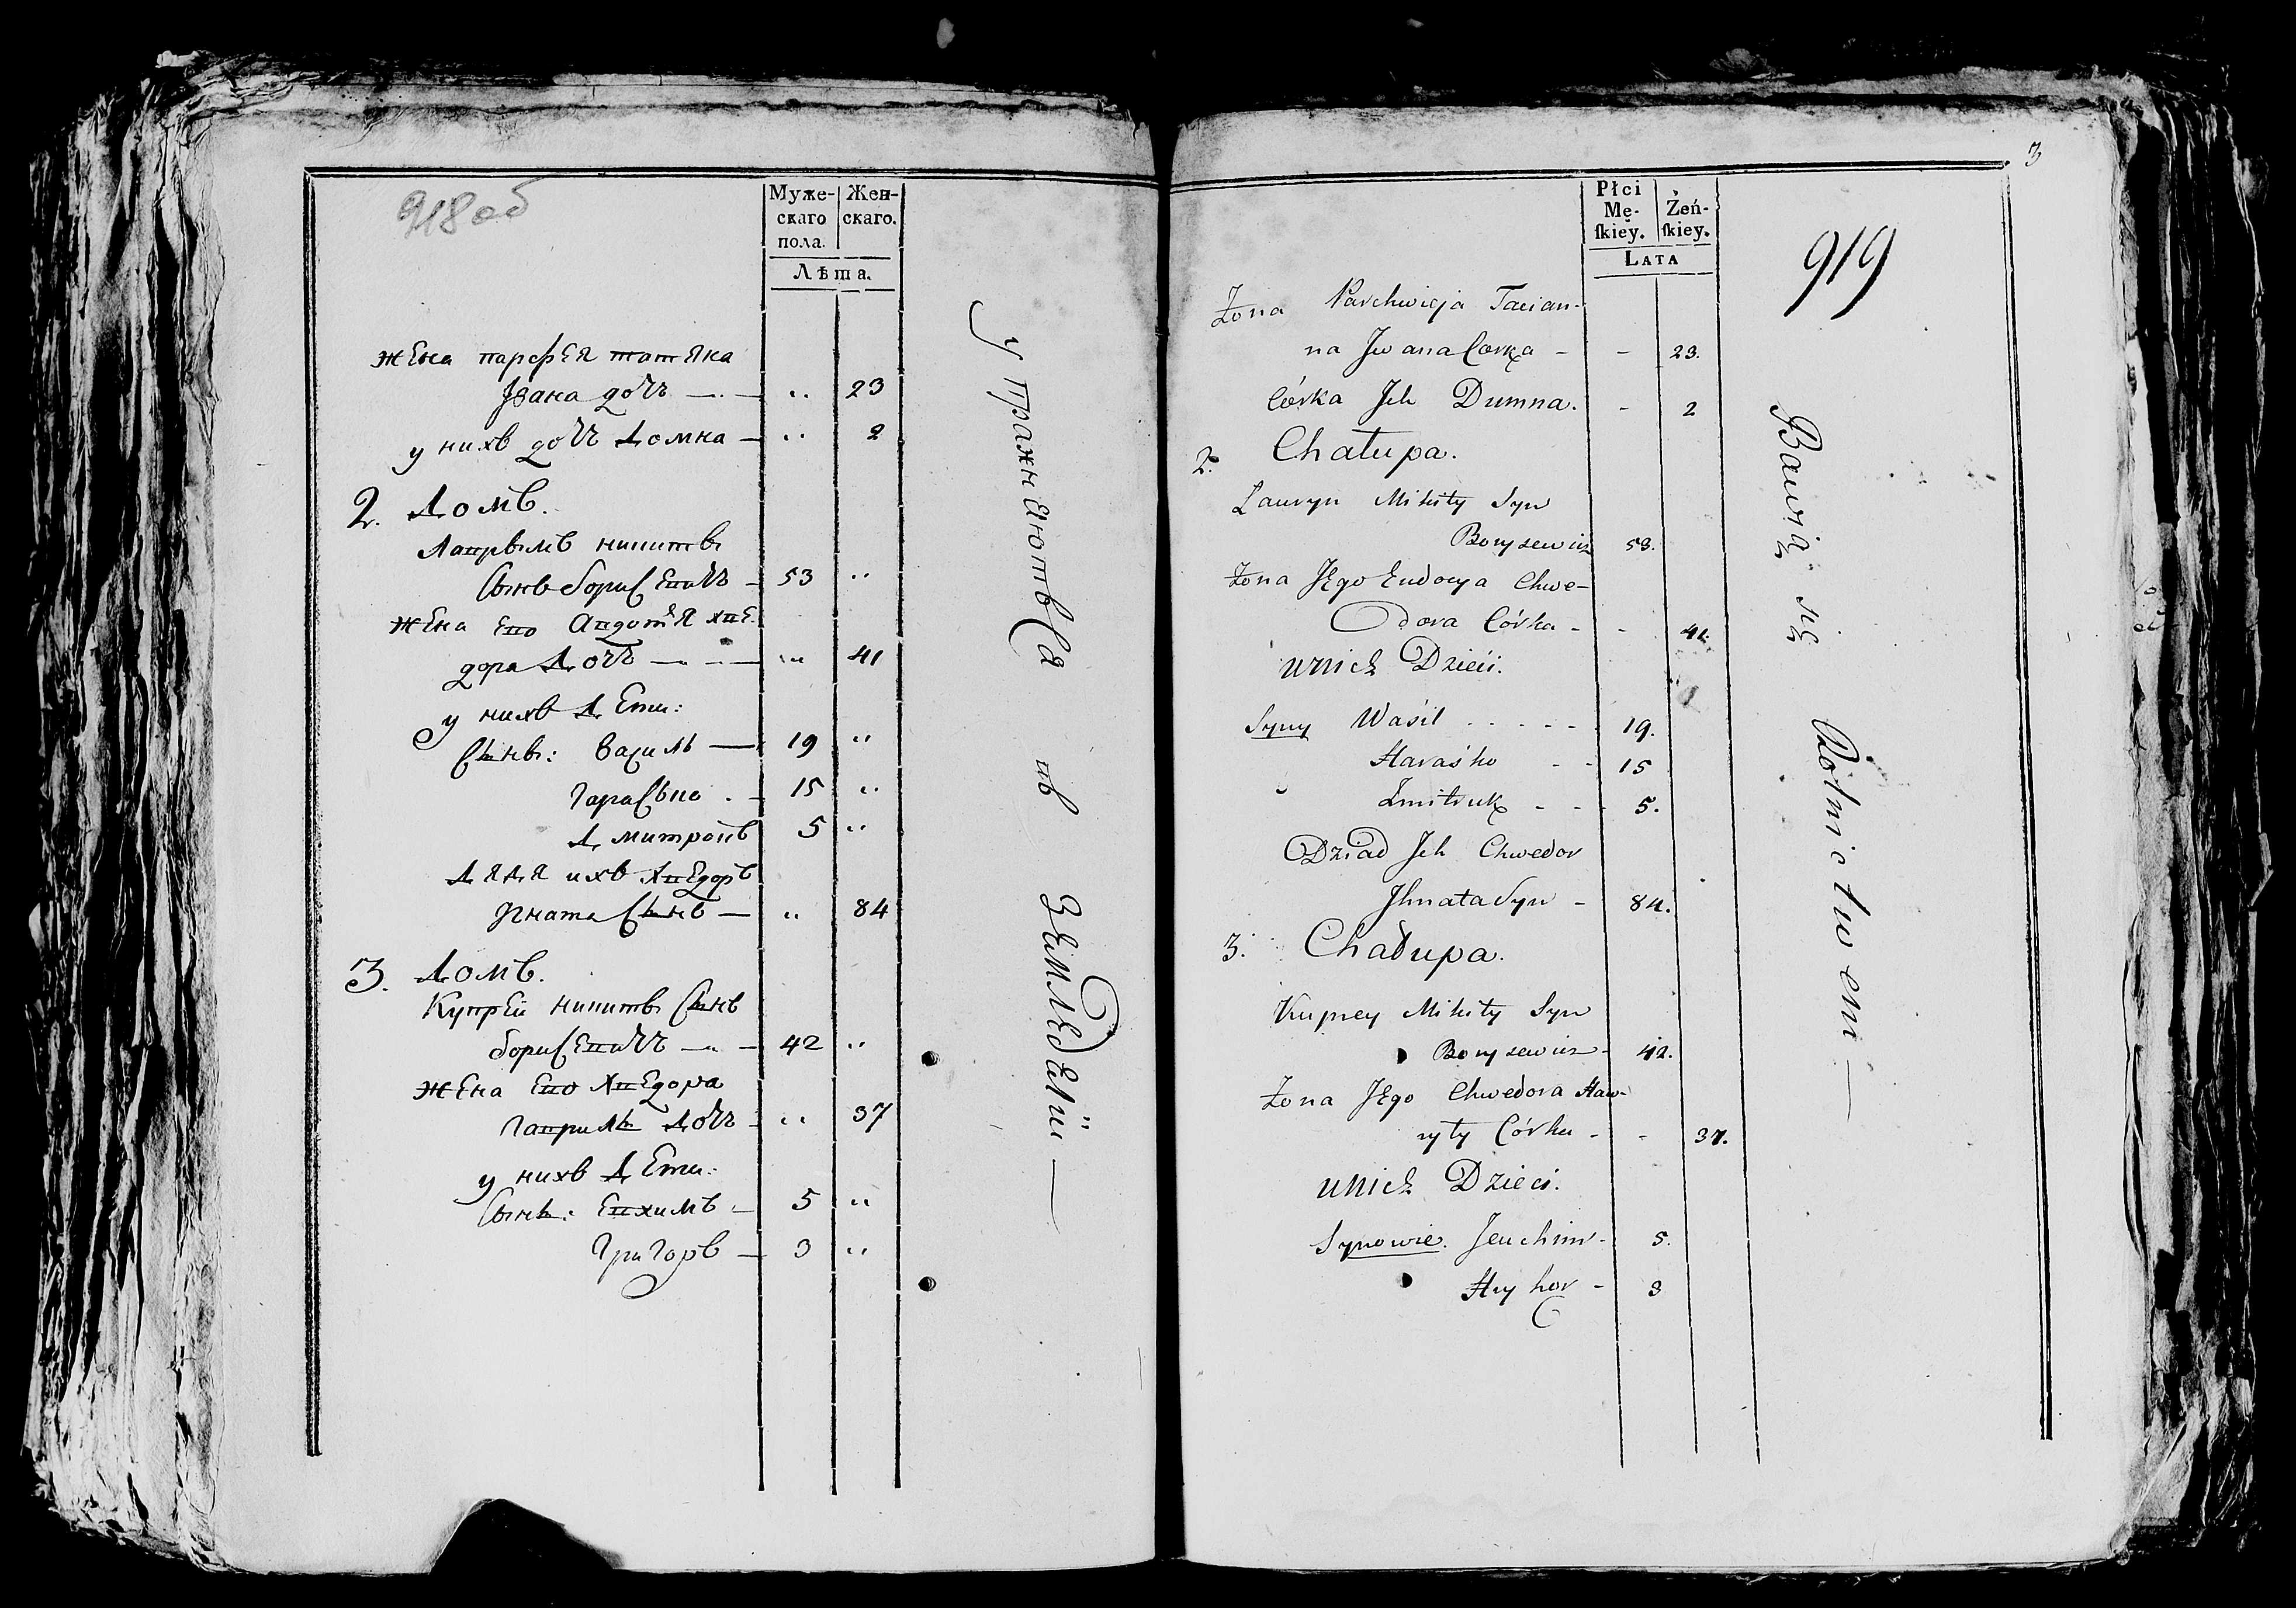 918 об
Муже-
скаго
пола.
Жен-
скаго.
Лѣта.
жена парфея татяна
Јвана дочь — .. 23
у нихъ дочь Домна — .. 2
2. Домъ.
Лаврынъ никиты
Сынъ борисевичь — 53 ..
жена Его Авдотья хве-
дора Дочь — .. 41
у нихъ Дети:
Сыны: василь — 19 ..
гарасько . — 15 ..
Дмитрокъ 5 ..
Дядя ихъ Хведоръ
Јгната Сынъ — .. 84
3. Домъ.
Купрей никиты Сынъ
борисевичь — 42 ..
жена Его Хведора
гаврилы Дочь .. 37
у нихъ Дети:
Сыны: Евхимъ — 5 ..
григоръ — 3 ..
упражняютъся въ земледелїи —
3
919
Płci
Mę-
ſkiey.
Żeń-
ſkiey.
Lata
Żona Parchwieja Tacian-
na Jwana Corka - - 23.
Córka Jch Dumna. - 2
2. Chałupa.
Lauryn Mikity Syn
Borysewicz 53.
Żona JEgo Eudocya Chwe-
dora Córka - - 41.
Unich Dzieći.
Syny Waśil . . . - - 19.
Haraśko - - 15
Zmitruk - - - 5.
Dziad Jch Chwedor
Jhnata Syn - 84.
3. Chałupa.
Kuprey Mikity Syn
Borysewicz - 42.
Żona JEgo Chwedora Haw-
ryły Córka - - 37.
Unich Dzieci.
Synowie. Jeuchim - 5.
Hryhor - 3
Bawią się Rolnictwem —